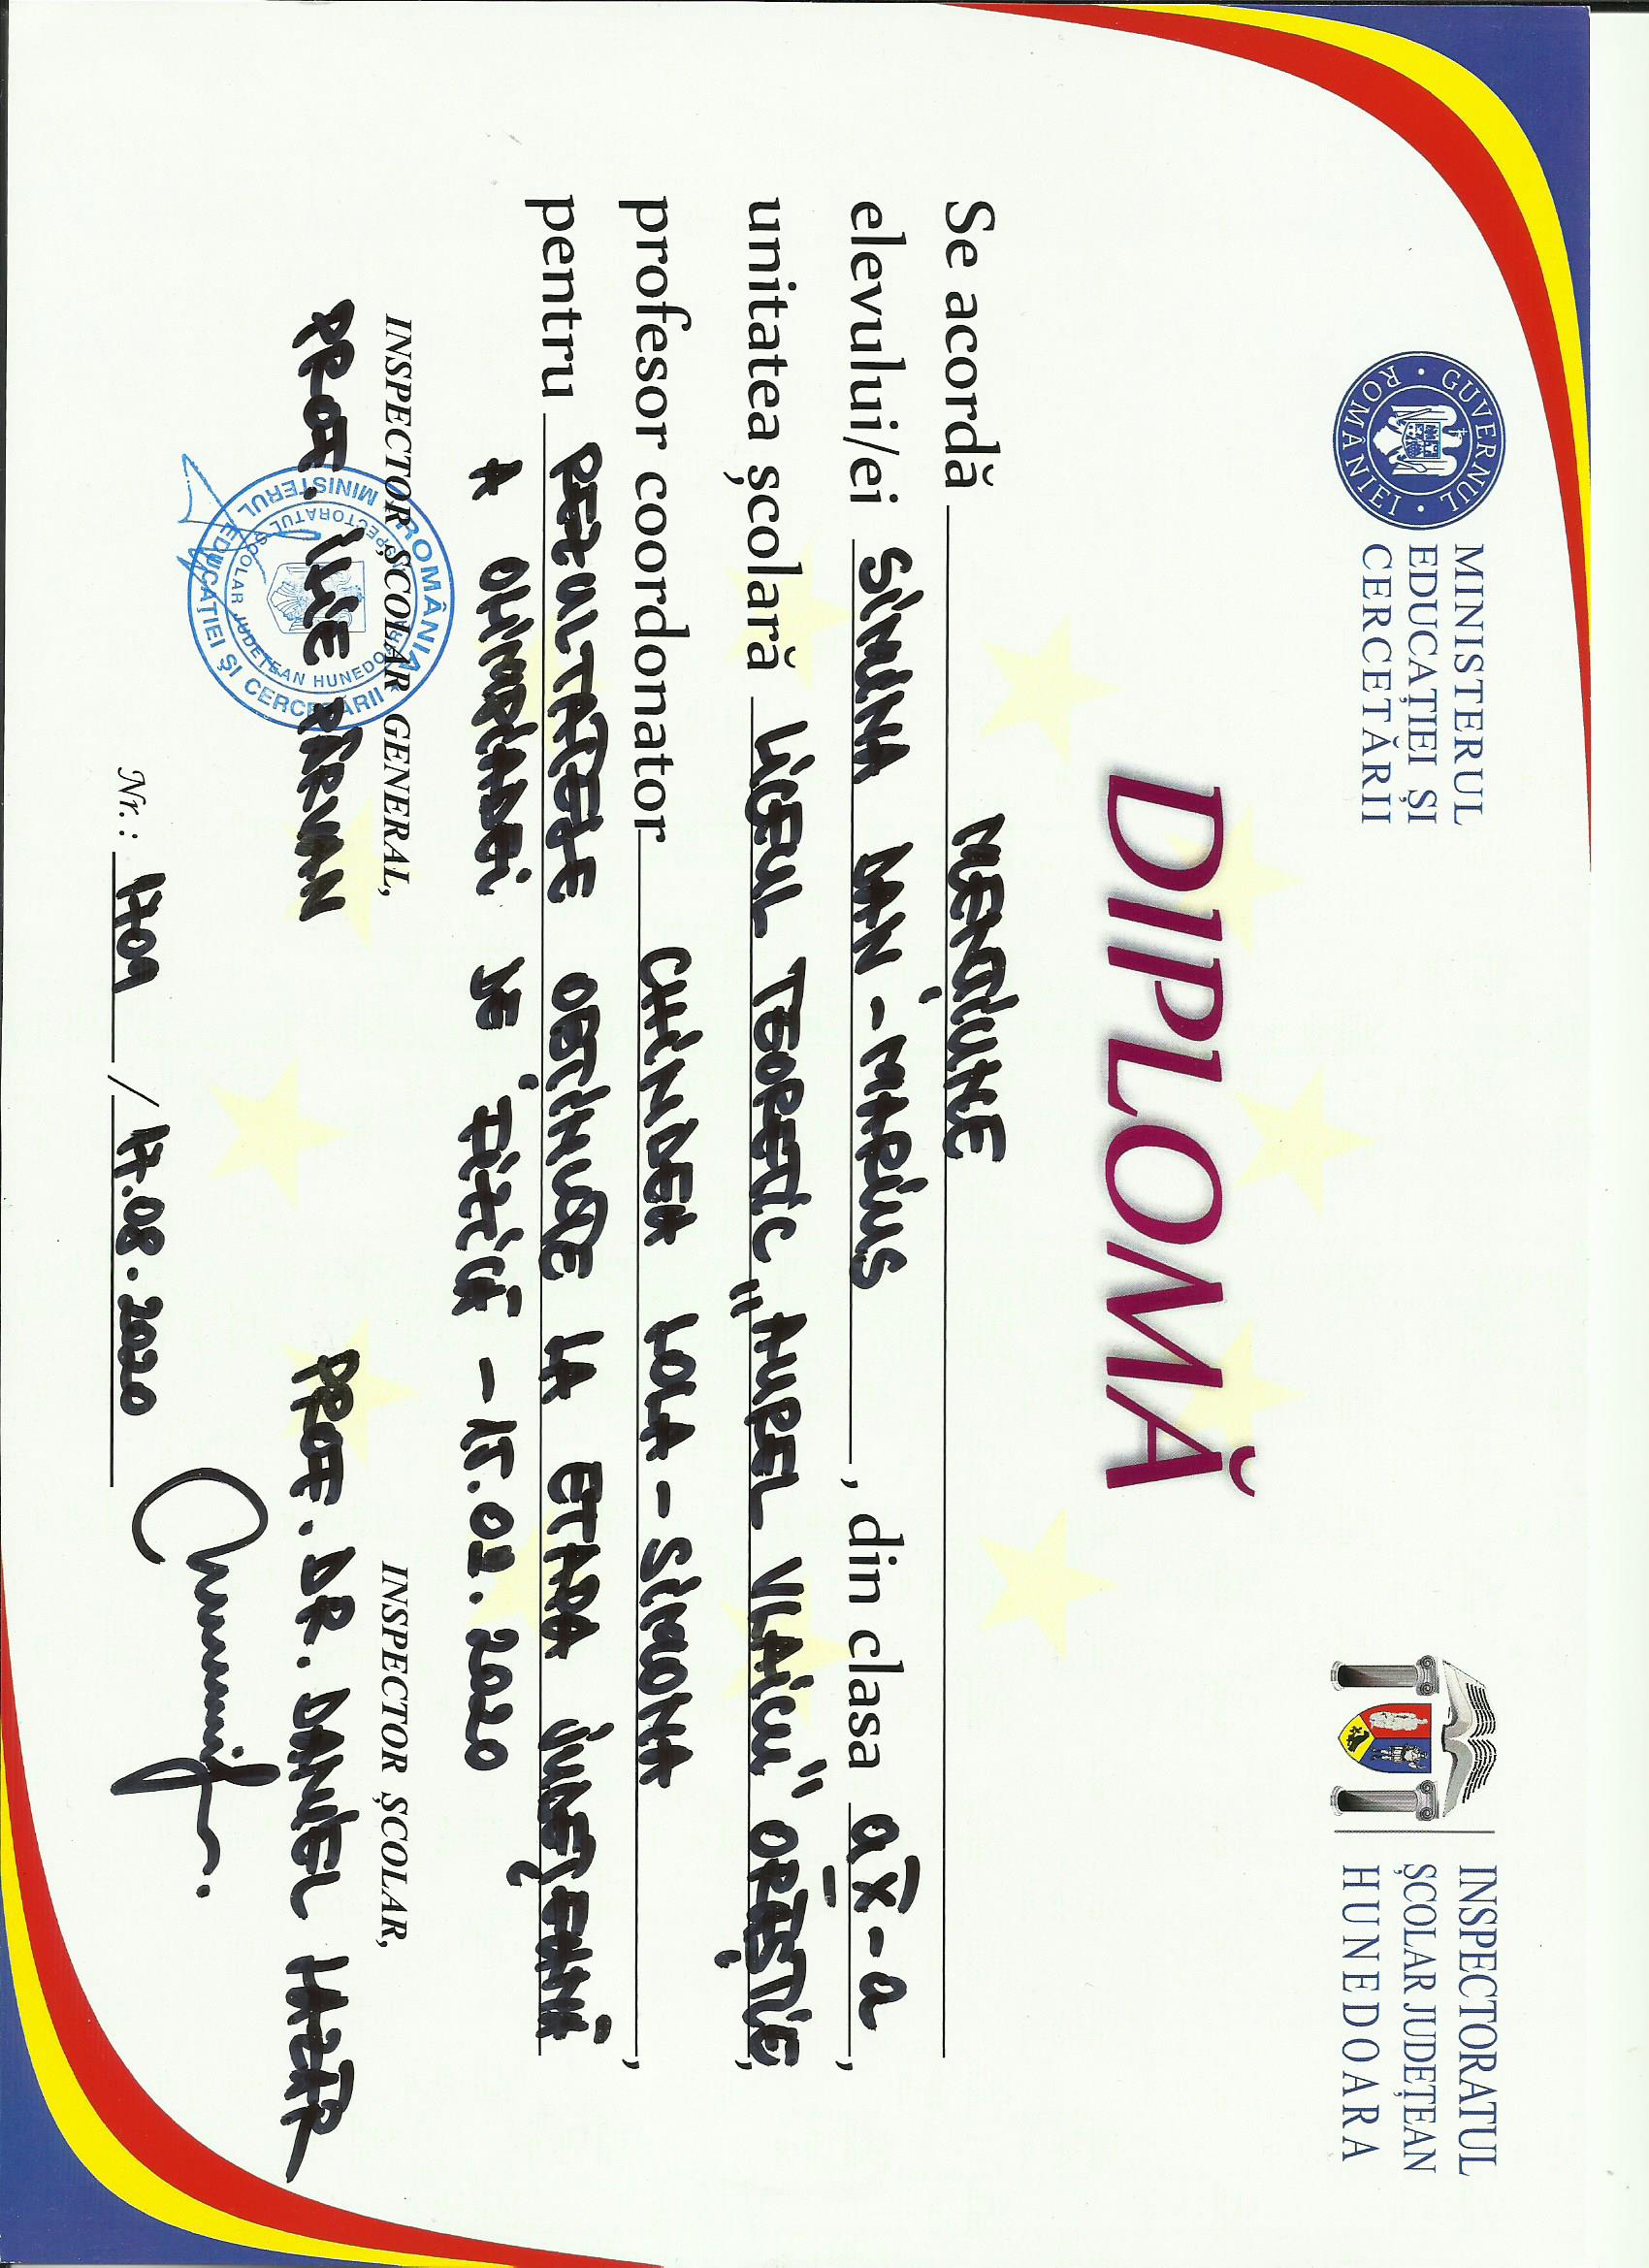 GUVERNUL ROMÂNIEI
MINISTERUL
EDUCAȚIEI ȘI
CERCETĂRII
INSPECTORATUL
ȘCOLAR JUDEȚEAN
HUNEDOARA
DIPLOMĂ
Se acordă MENȚIUNE
elevului/ei SIMINA DAN-MARIUS, din clasa a X-a,
unitatea școlară LICEUL TEORETIC „AUREL VLAICU" ORĂȘTIE,
profesor coordonator CHINDEA LOLA-SIMONA,
pentru REZULTATELE OBȚINUTE LA ETAPA JUDEȚEANĂ
A OLIMPIADEI DE FIZICĂ - 15.02.2020
INSPECTOR ȘCOLAR GENERAL,
PROF. ILIE PÂRVAN
INSPECTOR ȘCOLAR,
PROF. DR. DANIEL LAZĂR
ROMÂNIA
MINISTERUL EDUCAȚIEI ȘI CERCETĂRII
INSPECTORATUL ȘCOLAR JUDEȚEAN HUNEDOARA
Nr.: 1709 / 17.08.2020